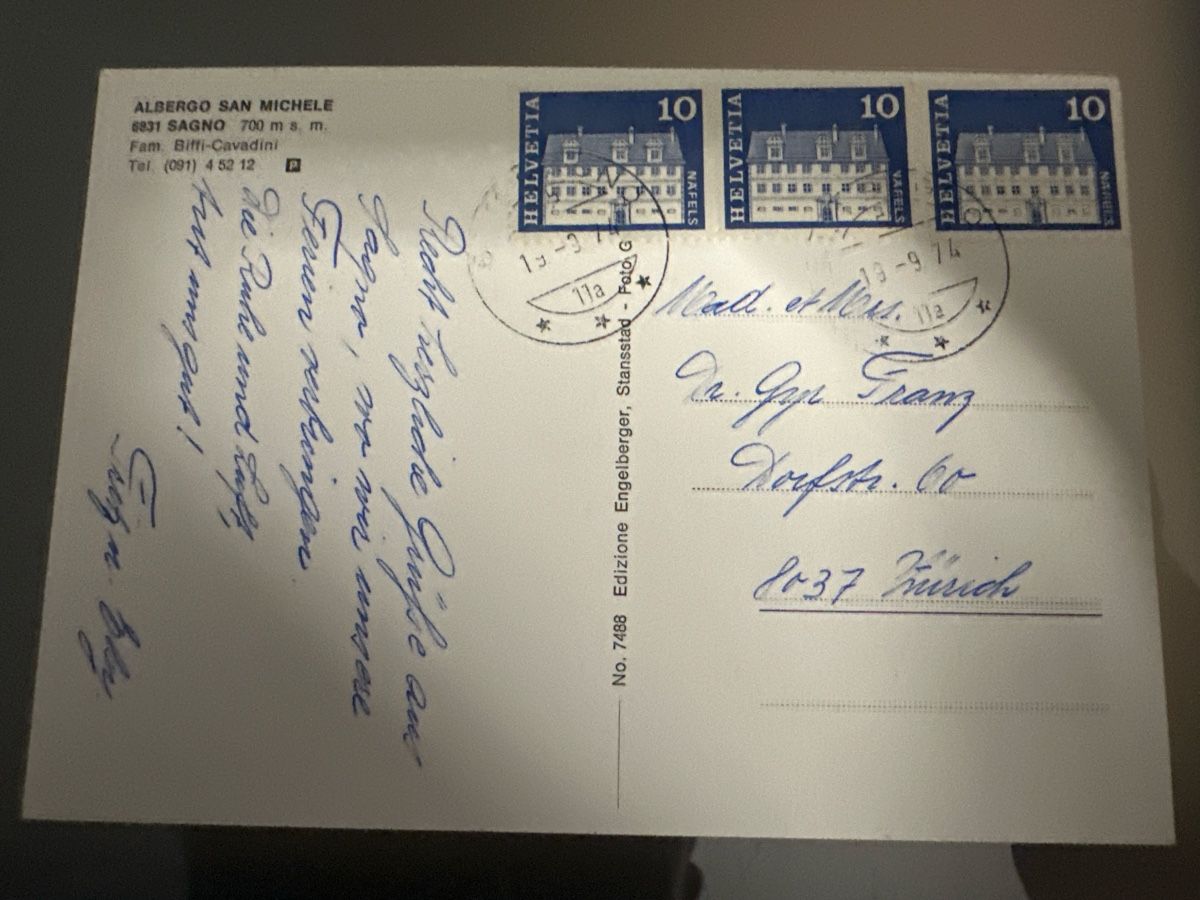 ALBERGO SAN MICHELE
6831 SAGNO 700 m s. m.
Fam. Biffi-Cavadini
Tel. (091) 4 52 12 P
HELVETIA 10 NÄFELS
HELVETIA 10 NÄFELS
HELVETIA 10 NÄFELS
19-9 74
11a
19-9 74
11a
Recht herzliche Grüße aus
Sagno, wo wir unsere
Ferien verbringen.
Die Ruhe und Luft
tut uns gut!
No. 7488 Edizione Engelberger, Stansstad - Foto G
Mad. et Mons.
Dr. Gyr Franz
Dorfstr. 60
8037 Zürich